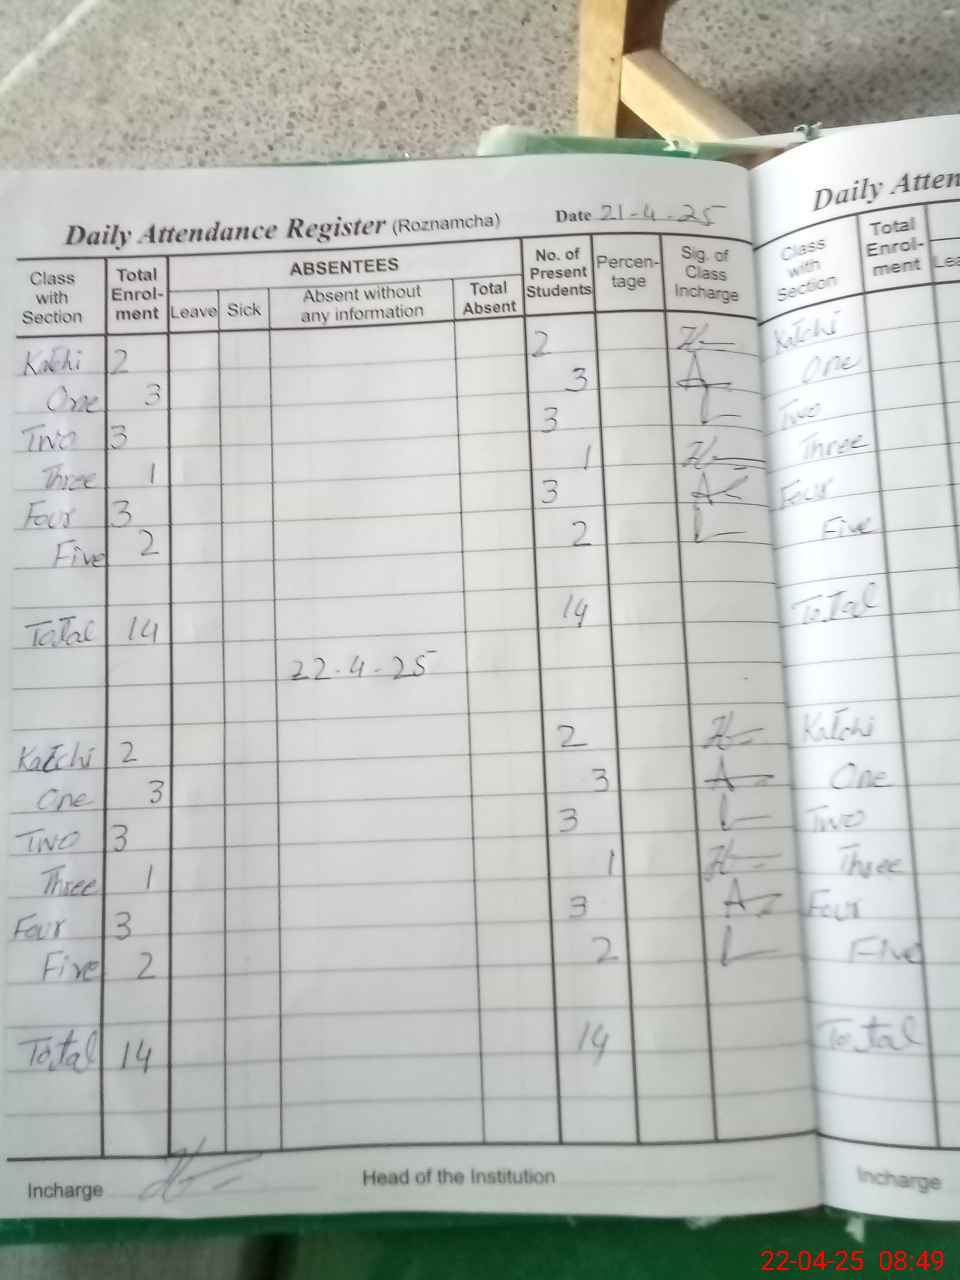 Daily Attendance Register (Roznamcha) Date 21-4-25
Class with Section Total Enrol-ment ABSENTEES Leave Sick Absent without any information Total Absent No. of Present Students Percen-tage Sig. of Class Incharge
Katchi 2 2
One 3 3
Two 3 3
Three 1 1
Four 3 3
Five 2 2
Total 14 14
22-4-25
Katchi 2 2
One 3 3
Two 3 3
Three 1 1
Four 3 3
Five 2 2
Total 14 14
Incharge Head of the Institution
Daily Atten
Class with Section Total Enrol-ment Lea
Katchi
One
Two
Three
Four
Five
Total
Katchi
One
Two
Three
Four
Five
Total
Incharge
22-04-25 08:49